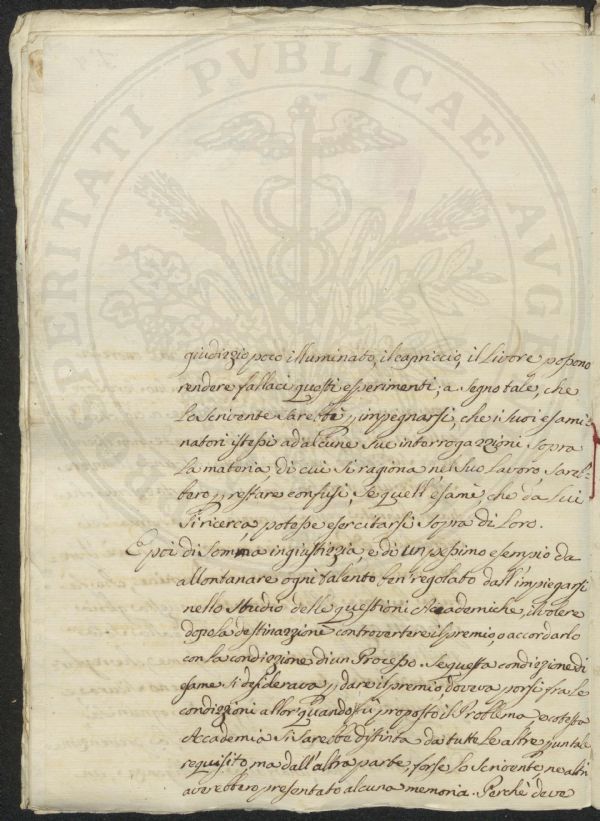 PROSPERITATI PVBLICAE AVGE
giudizzio poco illuminato, il capriccio, il Livore possono
rendere fallaci questi esperimenti; a segno tale, che
lo scrivente sarebbe p impegnarsi, che i suoi esami-
natori istessi ad alcune sue interrogazzioni sopra
la materia, di cui si ragiona nel suo Lavoro sareb-
bero p restare confusi, se quell'esame, che da Lui
si ricerca, potesse esercitarsi sopra di Loro.
E poi di somma ingiustizzia, e di un pessimo esempio da
allontanare ogni talento ben regolato dall'impiegarsi
nello studio delle questioni Accademiche, il volere
dopo la destinazzione controvertere il premio, o accordarlo
con la condizzione di un Processo. Se questa condizzione di
esame si desiderava p dare il premio doveva porsi fra le
condizzioni allor quando fu proposto il Problema, e cotesta
Accademia si sarebbe distinta da tutte le altre p un tale
requisito, ma dall'altra parte, forse lo scrivente, ne altri
averebbero presentato alcuna memoria. Perchè deve